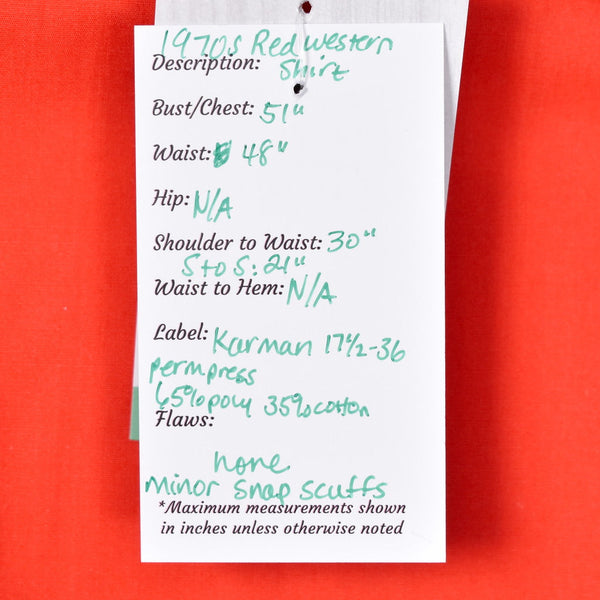 1970s Red western
Description: Shirt
Bust/Chest: 51"
Waist: 48"
Hip: N/A
Shoulder to Waist: 30"
S to S: 21"
Waist to Hem: N/A
Label: Karman 17 1/2-36
perm press
65% poly 35% cotton
Flaws:
none
Minor snap scuffs
*Maximum measurements shown
in inches unless otherwise noted